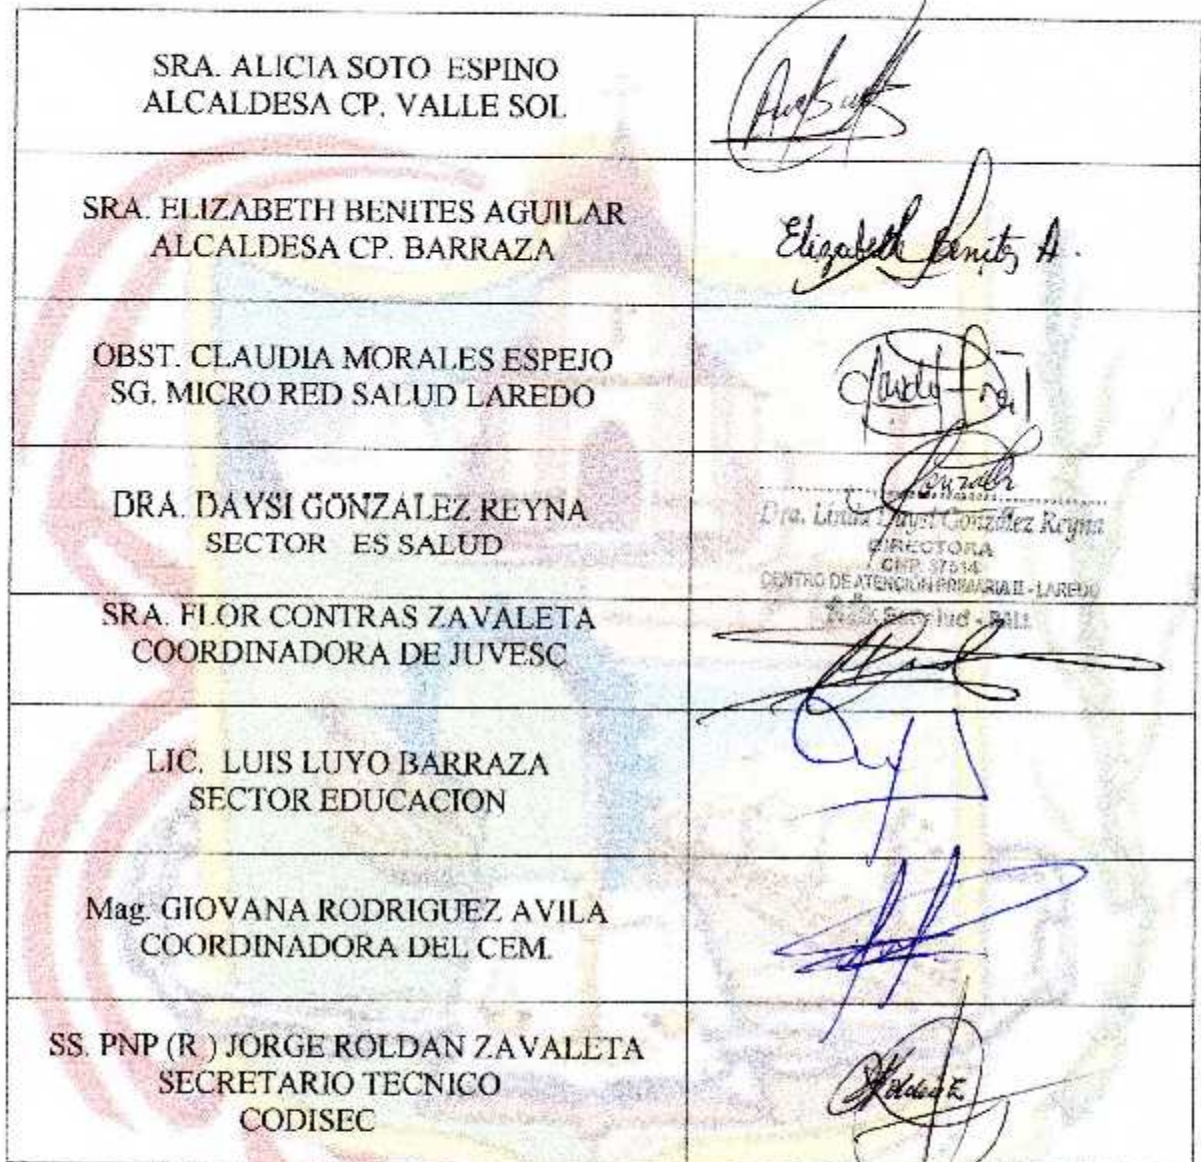 SRA. ALICIA SOTO ESPINO
ALCALDESA CP. VALLE SOL
SRA. ELIZABETH BENITES AGUILAR
ALCALDESA CP. BARRAZA
Elizabeth Benites A.
OBST. CLAUDIA MORALES ESPEJO
SG. MICRO RED SALUD LAREDO
DRA. DAYSI GONZALEZ REYNA
SECTOR ES SALUD
Dra. Linda Daysi González Reyna
DIRECTORA
CMP. 37514
CENTRO DE ATENCIÓN PRIMARIA II - LAREDO
SRA. FLOR CONTRAS ZAVALETA
COORDINADORA DE JUVESC
LIC. LUIS LUYO BARRAZA
SECTOR EDUCACION
Mag. GIOVANA RODRIGUEZ AVILA
COORDINADORA DEL CEM.
SS. PNP (R ) JORGE ROLDAN ZAVALETA
SECRETARIO TECNICO
CODISEC